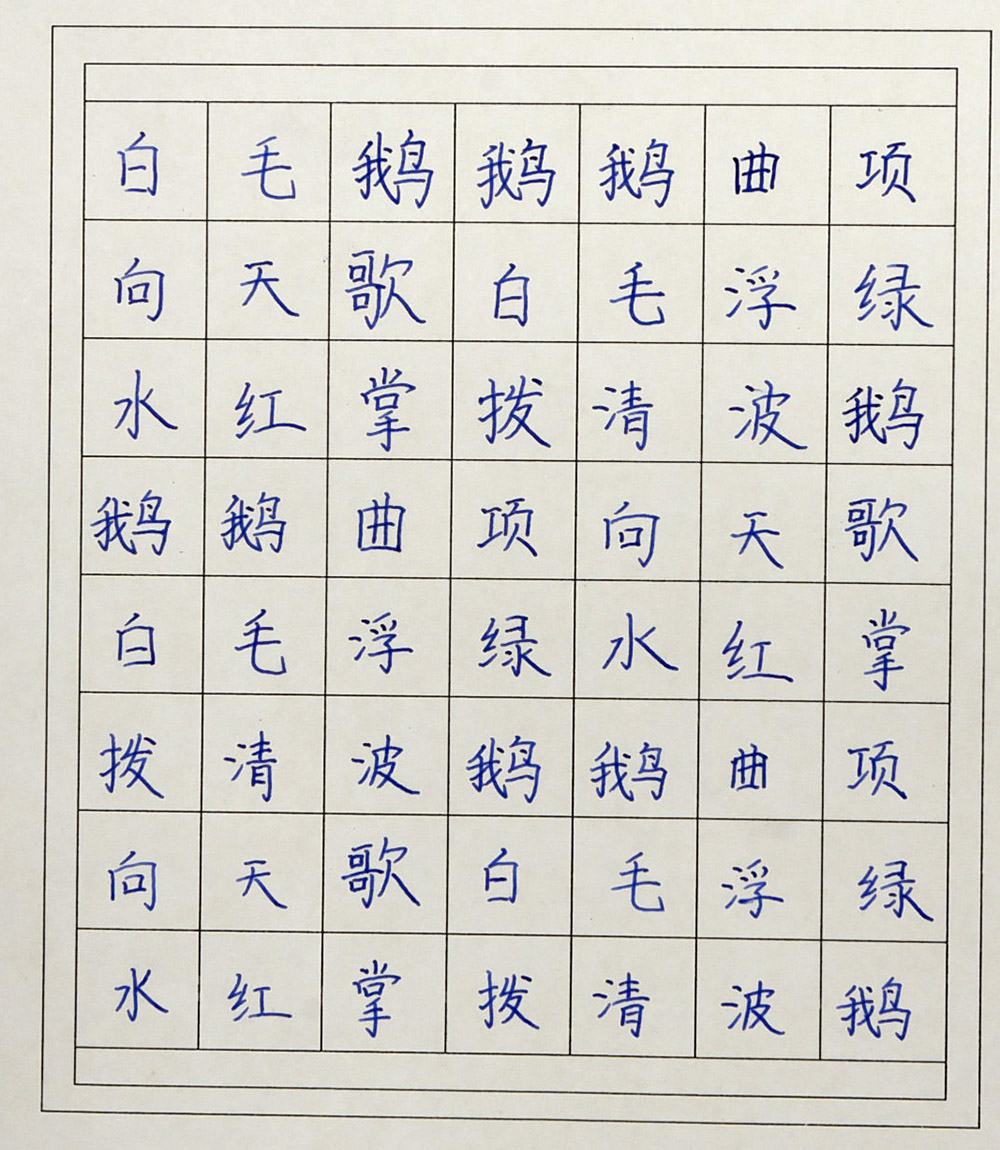 白毛鹅鹅鹅曲项
向天歌白毛浮绿
水红掌拨清波鹅
鹅鹅曲项向天歌
白毛浮绿水红掌
拨清波鹅鹅曲项
向天歌白毛浮绿
水红掌拨清波鹅